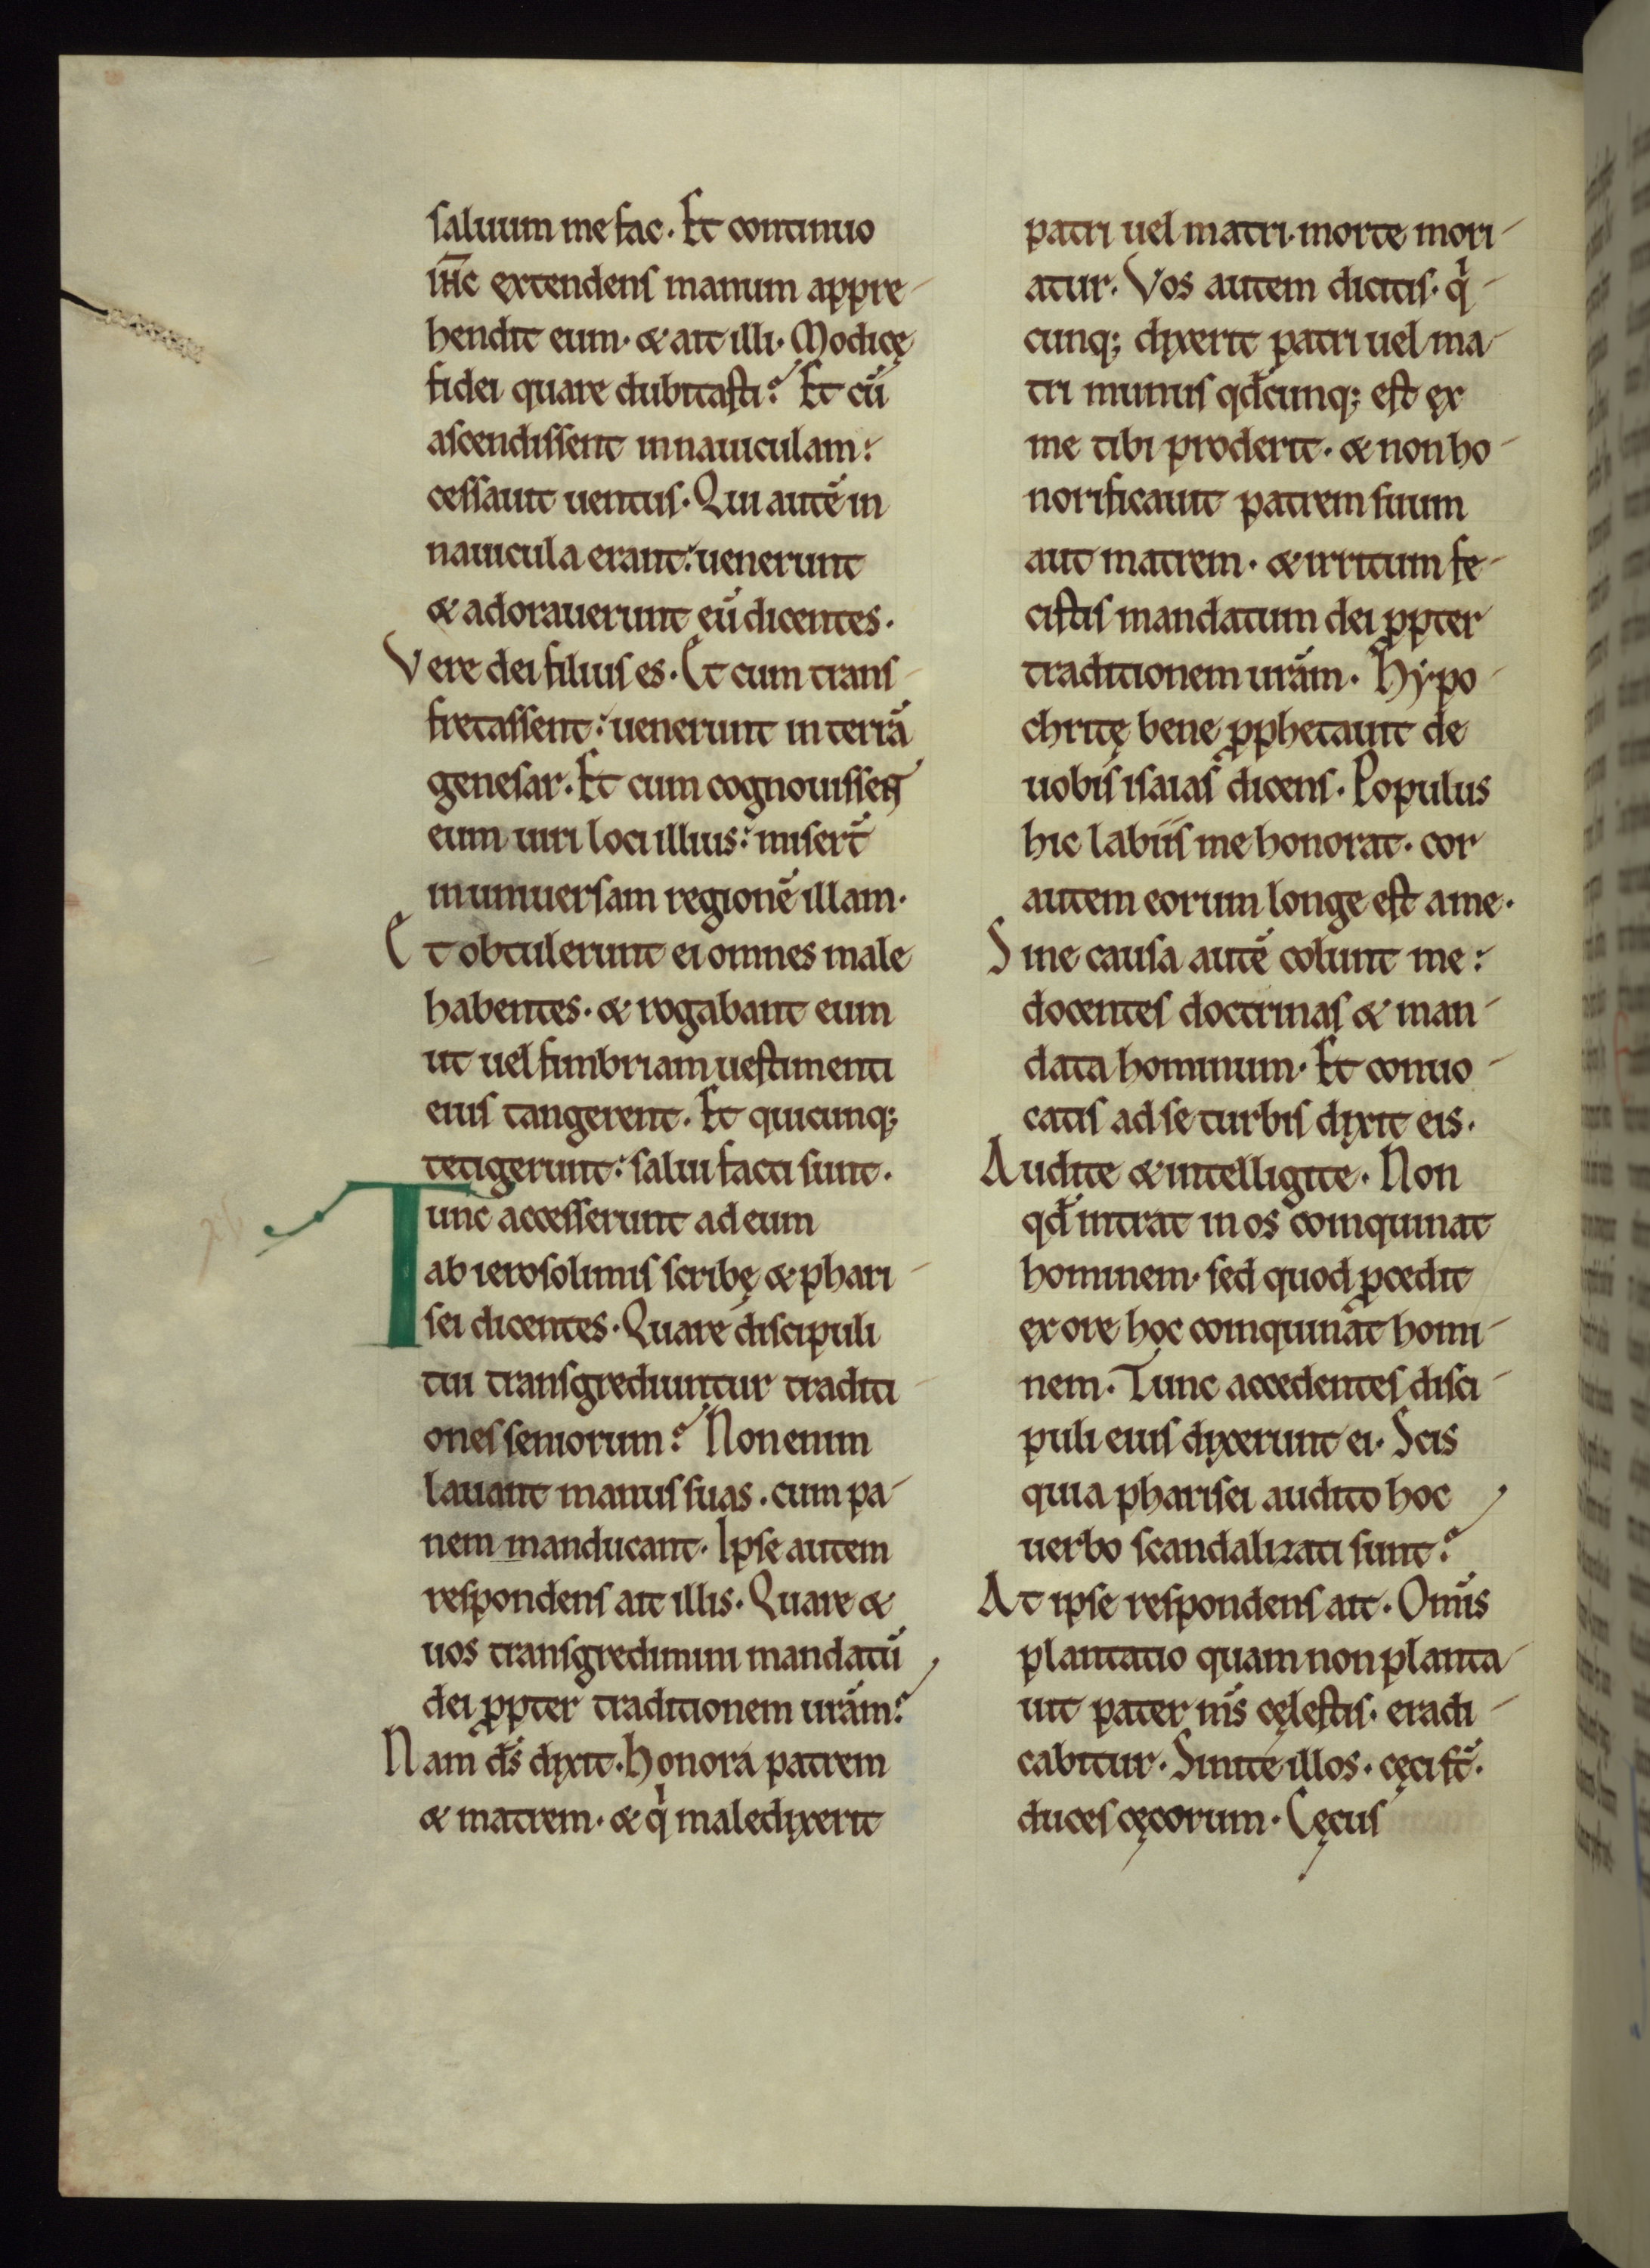 saluum me fac. Et continuo
ih̅c extendens manum appre-
hendit eum. & ait illi. Modicę
fidei quare dubitasti? Et cū
ascendissent in nauiculam:
cessauit uentus. Qui autē in
nauicula erant: uenerunt
& adorauerunt eū dicentes.
Vere dei filius es. Et cum trans-
fretassent: uenerunt in terrā
genesar. Et cum cognouissent
eum uiri loci illius: misert̄
in uniuersam regionē illam.
Et obtulerunt ei omnes male
habentes. & rogabant eum
ut uel fimbriam uestimenti
eius tangerent. Et quicunq;
tetigerunt: salui facti sunt.
Tunc accesserunt ad eum
ab ierosolimis scribę & phari-
sei dicentes. Quare discipuli
tui transgrediuntur traditi-
ones seniorum? Non enim
lauant manus suas. cum pa-
nem manducant. Ipse autem
respondens ait illis. Quare &
uos transgredimini mandatū
dei ꝓpter traditionem urām?
Nam ds̄ dixit. Honora patrem
& matrem. & qͥ maledixerit
patri uel matri. morte mori-
atur. Vos autem dicitis. qͥ-
cunq; dixerit patri uel ma-
tri munus qd̄cunq; est ex
me tibi proderit. & non ho-
norificauit patrem suum
aut matrem. & irritum fe-
cistis mandatum dei ꝓpter
traditionem urām. Hypo-
chritę bene ꝓphetauit de
uobis isaias dicens. Populus
hic labiis me honorat. cor
autem eorum longe est a me.
Sine causa autē colunt me:
docentes doctrinas & man-
data hominum. Et conuo-
catis ad se turbis dixit eis.
Audite & intelligite. Non
qd̄ intrat in os coinquinat
hominem. sed quod ꝓcedit
ex ore hoc coinquinat homi-
nem. Tunc accedentes disci-
puli eius dixerunt ei. Scis
quia pharisei audito hoc
uerbo scandalizati sunt?
At ipse respondens ait. Omīs
plantatio quam non planta-
uit pater ms̄ cęlestis. eradi-
cabitur. Sinite illos. cęci st̄.
duces cęcorum. Cęcus